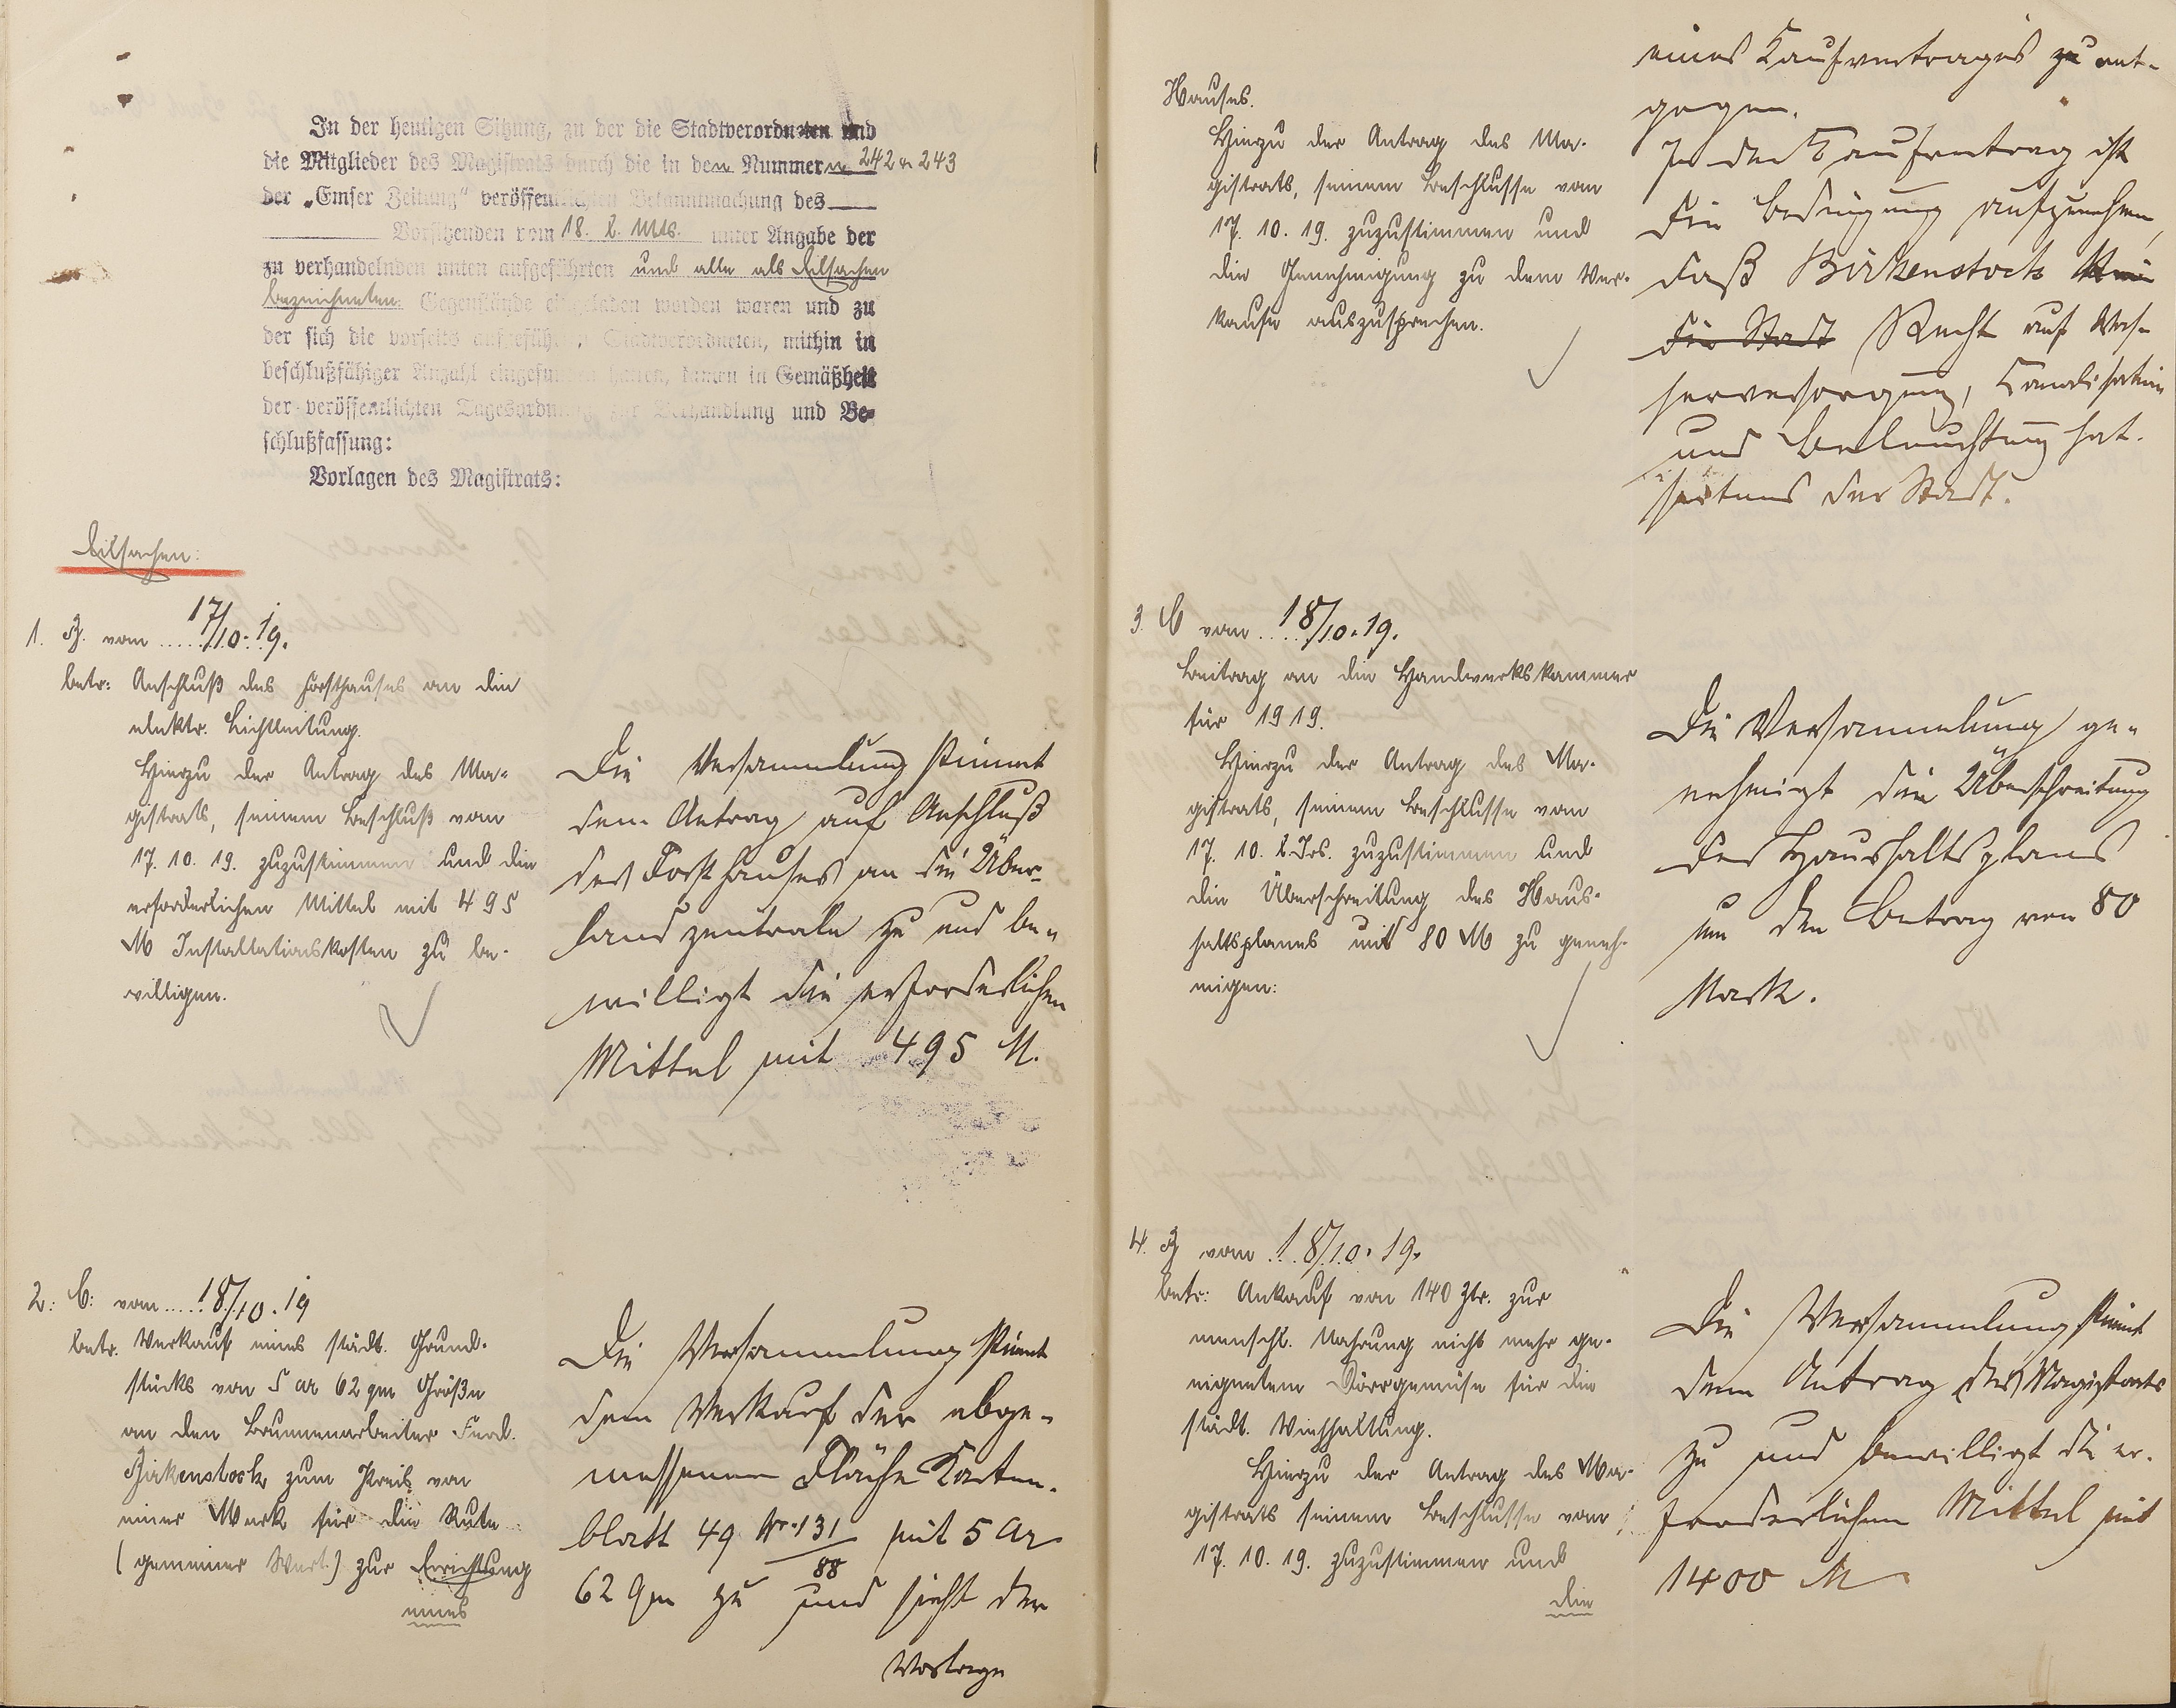 In der heutigen Sitzung, zu der die Stadtverordneten und
die Mitglieder des Magistrats durch die in den Nummern 242 u 243
der „Emser Zeitung“ veröffentlichten Bekanntmachung des
Vorsitzenden vom 18. d. Mts. unter Angabe der
zu verhandelnden unten aufgeführten und alle als Eilsachen
bezeichneten Gegenstände eingeladen worden waren und zu
der sich die vorseits aufgeführten Stadtverordneten, mithin in
beschlußfähiger Anzahl eingefunden hatten, kamen in Gemäßheit
der veröffentlichten Tagesordnung zur Verhandlung und Be-
schlußfassung:
Vorlagen des Magistrats:
Eilsachen:
1. B. vom 17/10.19.
betr: Anschluß des Forsthauses an die
elektr. Lichtleitung.
Hierzu der Antrag des Ma-
gistrats, seinem Beschluß vom
17. 10. 19. zuzustimmen und die
erforderlichen Mittel mit 495
M Installationskosten zu be-
willigen.
Die Versammlung stimmt
dem Antrag auf Anschluß
des Forsthauses an die Über-
landzentrale zu und be-
willigt die erforderlichen
Mittel mit 495 M.
2. C. vom 18/10.19
betr. Verkauf eines städt. Grund-
stücks von 5 ar 62 qm Größe
an den Brunnenarbeiter Ferd.
Birkenstock zum Preis von
einer Mark für die Rute
(gemeiner Wert) zur Errichtung
eines
Die Versammlung stimmt
dem Verkauf der abge-
messenen Fläche Karten-
blatt 49 Nr. 131/88 mit 5 Ar
62 qm zu und sieht der
Vorlage
Hauses.
Hierzu der Antrag des Ma-
gistrats, seinem Beschlusse vom
17. 10. 19. zuzustimmen und
die Genehmigung zu dem Ver-
kaufe auszusprechen.
eines Kaufvertrages zu ent-
gegen.
In den Kaufvertrag ist
die Bedingung aufzunehmen,
daß Birkenstock kein
die Stadt Recht auf Was-
serversorgung, Kanalisation
und Beleuchtung hat.
seitens der Stadt.
3. C vom 18/10.19.
Beitrag an die Handwerkskammer
für 1919.
Hierzu der Antrag des Ma-
gistrats, seinem Beschlusse vom
17. 10. d. Jrs. zuzustimmen und
die Überschreitung des Haus-
haltsplanes mit 80 M zu geneh-
migen:
Die Versammlung ge-
nehmigt die Überschreitung
des Haushaltsplans
um den Betrag von 80
Mark.
4. B vom 18/10.19.
betr: Ankauf von 140 Ztr. zur
menschl. Nahrung nicht mehr ge-
eignetem Dörrgemüse für die
städt. Viehhaltung.
Hierzu der Antrag des Ma-
gistrats seinem Beschlusse vom
17. 10. 19. zuzustimmen und
die
Die Versammlung stimmt
dem Antrag des Magistrats
zu und bewilligt die er-
forderlichen Mittel mit
1400 M